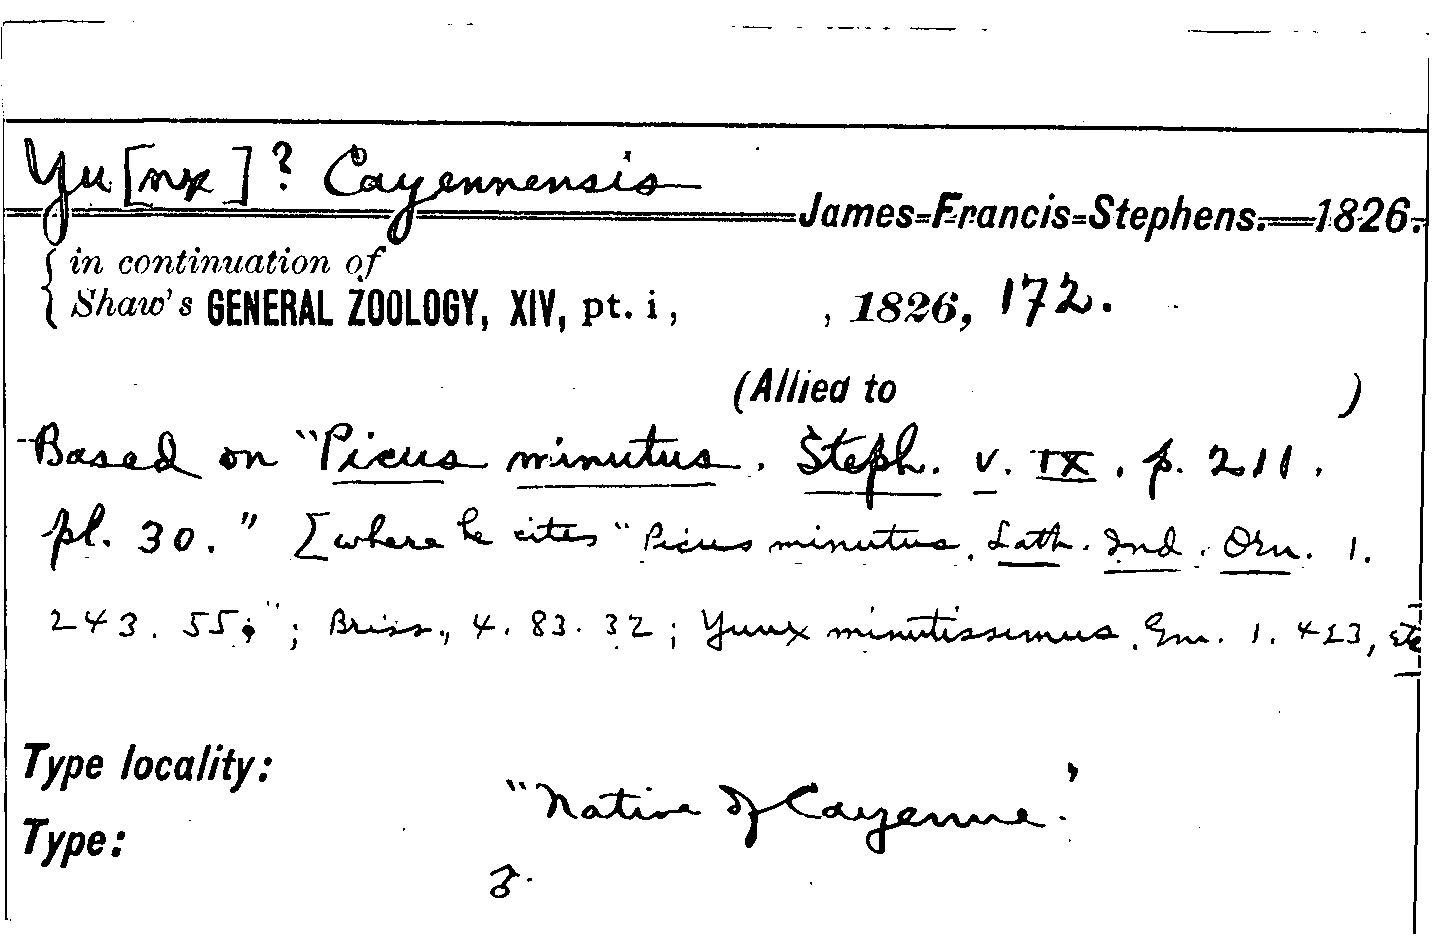 Yu[nx]? Cayennensis
James-Francis-Stephens.—1826.
in continuation of
Shaw's GENERAL ZOOLOGY, XIV, pt. i, , 1826, 172.
(Allied to )
Based on "Picus minutus. Steph. v. IX. p. 211.
pl. 30." [where he cites "Picus minutus, Lath. Ind. Orn. 1.
243. 55;"; Briss., 4. 83. 32; Yunx minutissimus. Gm. 1. 423, etc
Type locality:
"Native of Cayenne."
Type:
♂.